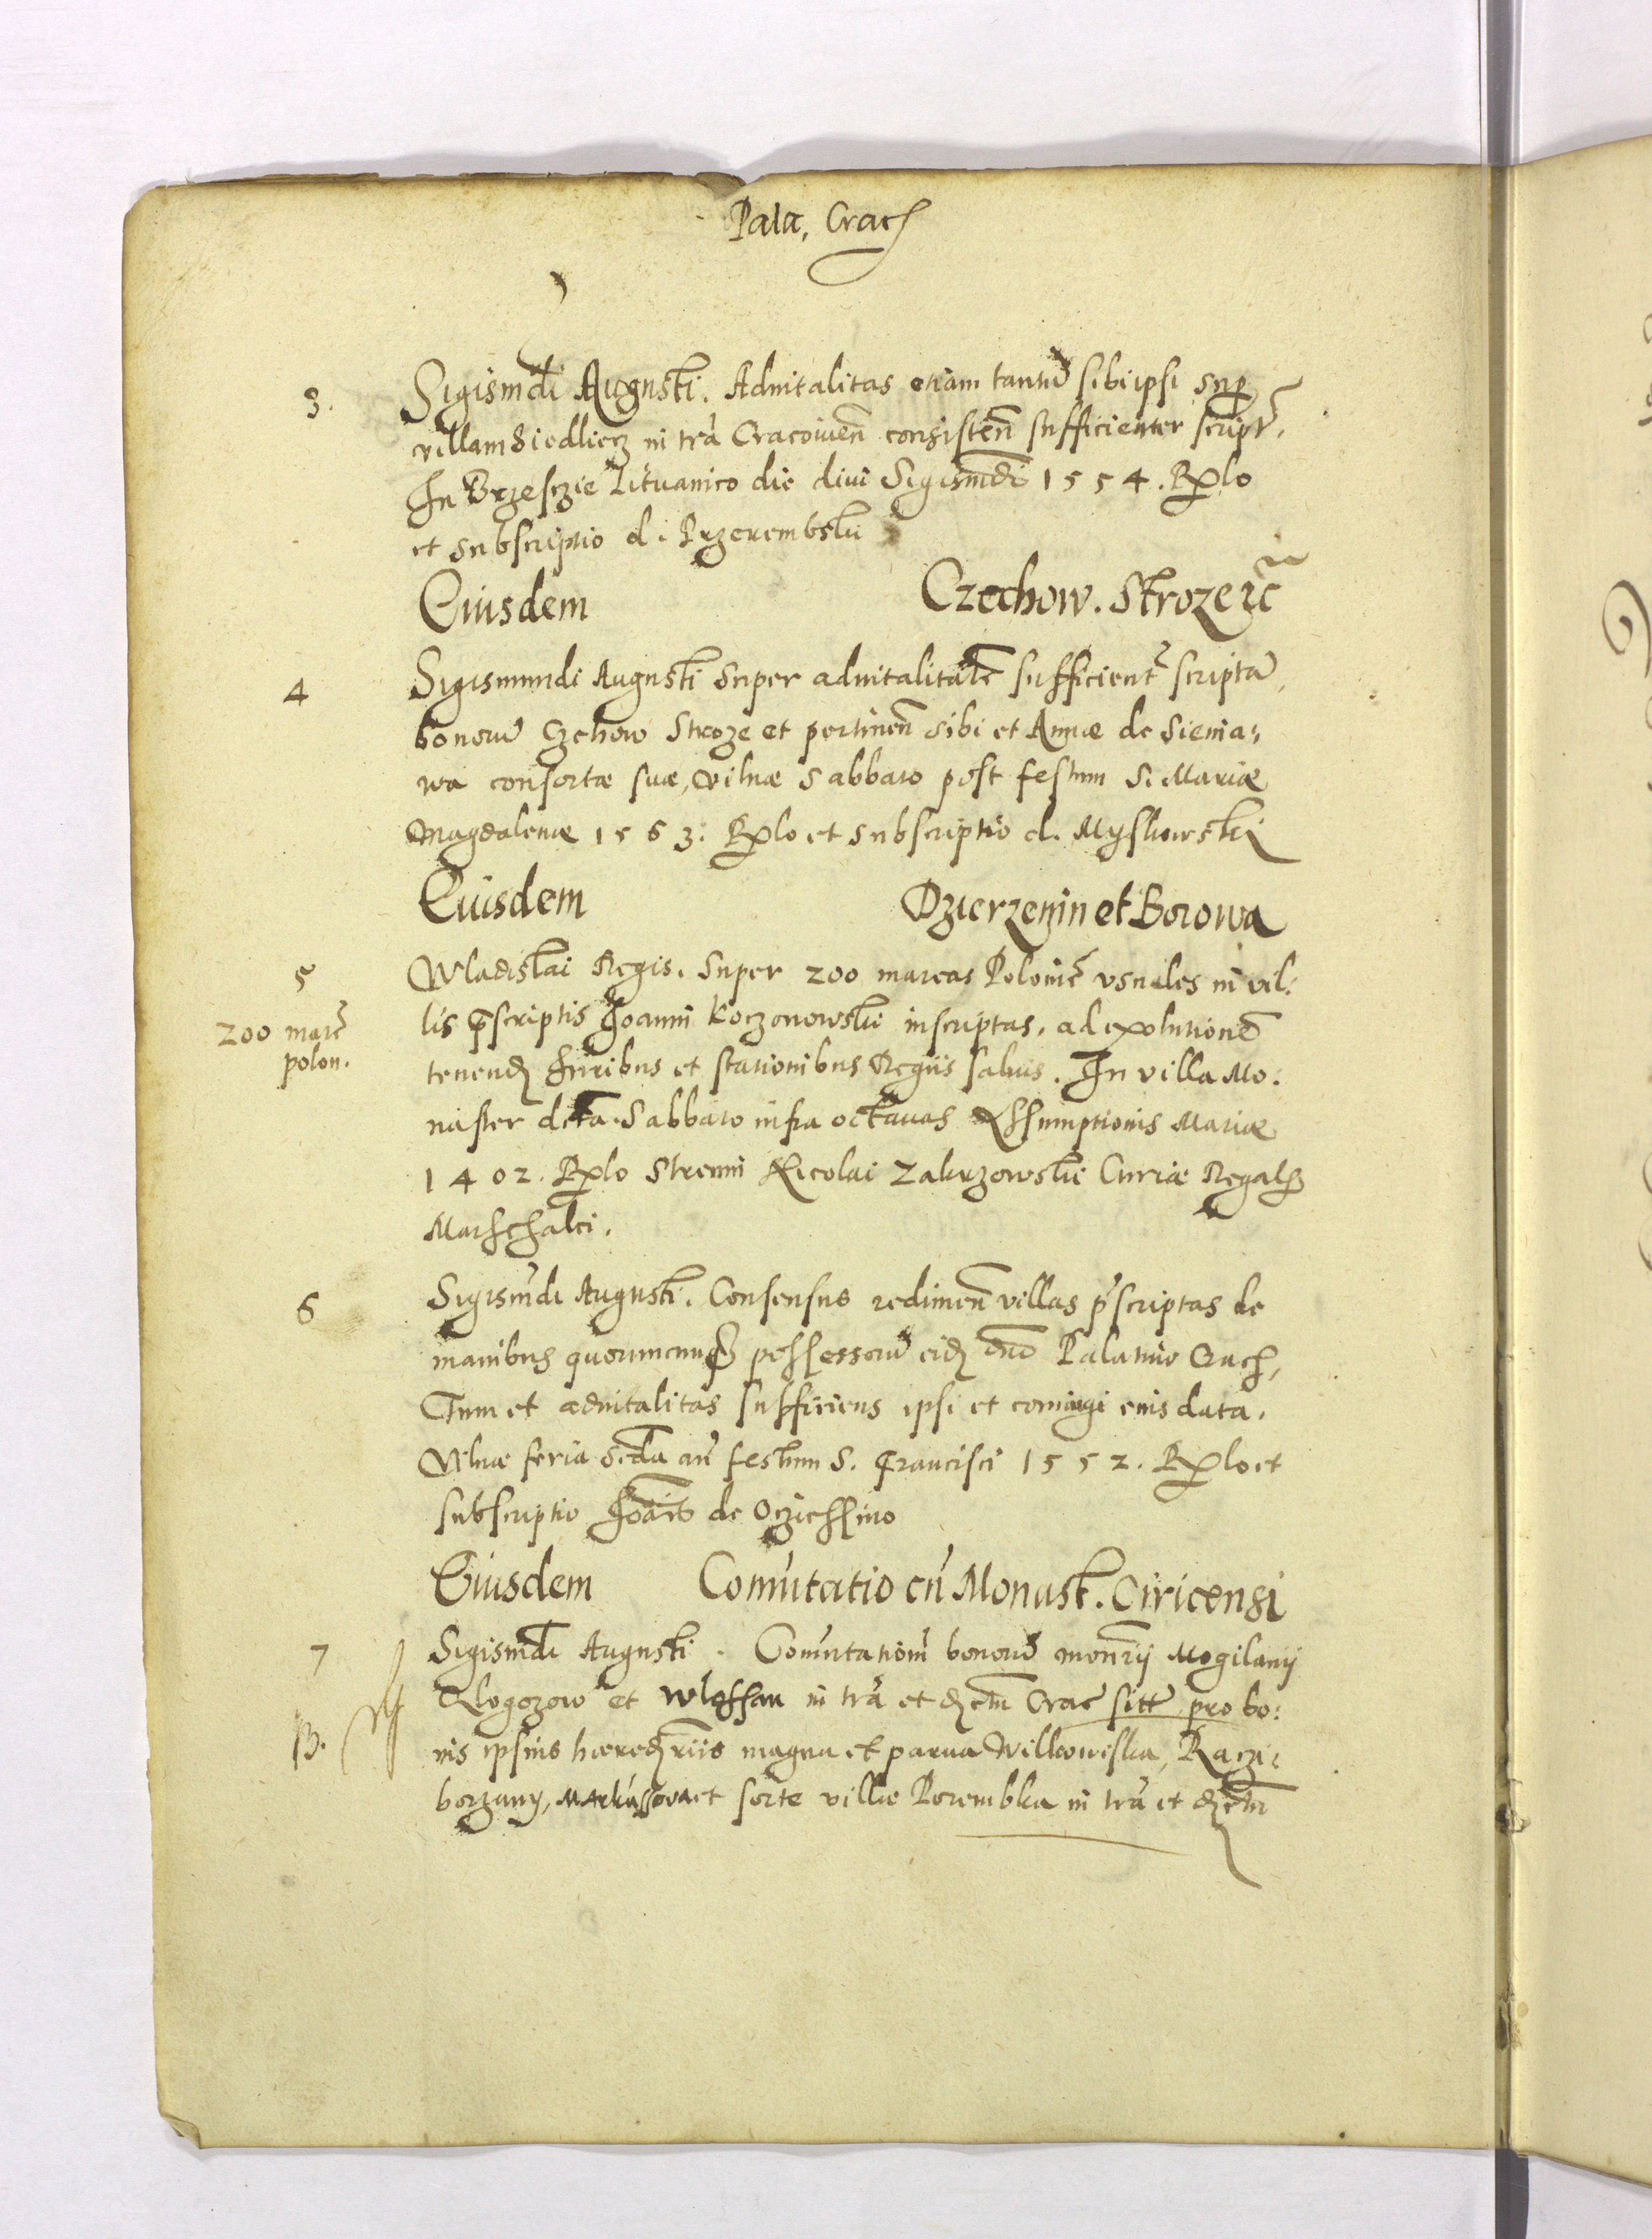 Pala. Crac
3. Sigismdi Augusti. Advitalitas etiam tantũ sibi ipsi sup
villam Siedliecz in tra Cracovien consisten sufficienter script.
In Brzesczie Lituanico die divi Sigismdi 1554. Rlo
et subscriptio d. Przerembski
Eiusdem Czechow. Stroze zc
4 Sigismundi Augusti super advitalitate sufficient scripta
bonorũ Czchow Stroze et pertinen sibi et Annæ de Sienia-
wa consortæ suæ, Vilnæ Sabbato post festum S. Mariæ
Magdalenæ 1563. Rlo et subscriptio d. Myskowski
Eiusdem Dzierzenin et Borowa
5 Wladislai Regis. Super 200 marcas Polonic usuales in vil:
200 marc lis pscriptis Joanni Koczonowski inscriptas, ad exolutionẽ
polon. tenend Juribus et stationibus Regiis salvis. In villa Mo:
naster data Sabbato infra octavas Assumptionis Mariæ
1402. Rlo Strenui Nicolai Zakrzowski Curiæ Regalis
Marschalci.
6 Sigismdi Augusti. Consensus redimen villas pscriptas de
manibus quorumcunq possessorũ eid dno Palatino Crac,
Tum et advitalitas sufficiens ipsi et coniugi eius data.
Vilnæ feria scda an festum S. Francisci 1552. Rlo et
subscriptio Joanis de Ocziessino
Eiusdem Comutatio cu Monast. Ciricensi
7 Sigismdi Augusti. Comutationi bonorũ monrij Mogilanij
Glogozow et Wlossan in tra et dcm Crac sitt pro bo:
B. nis ipsius hæredriis magna et parva Wilkowiska, Raczi:
borzany, Markussova et sorte villæ Porembka in tra et dcm